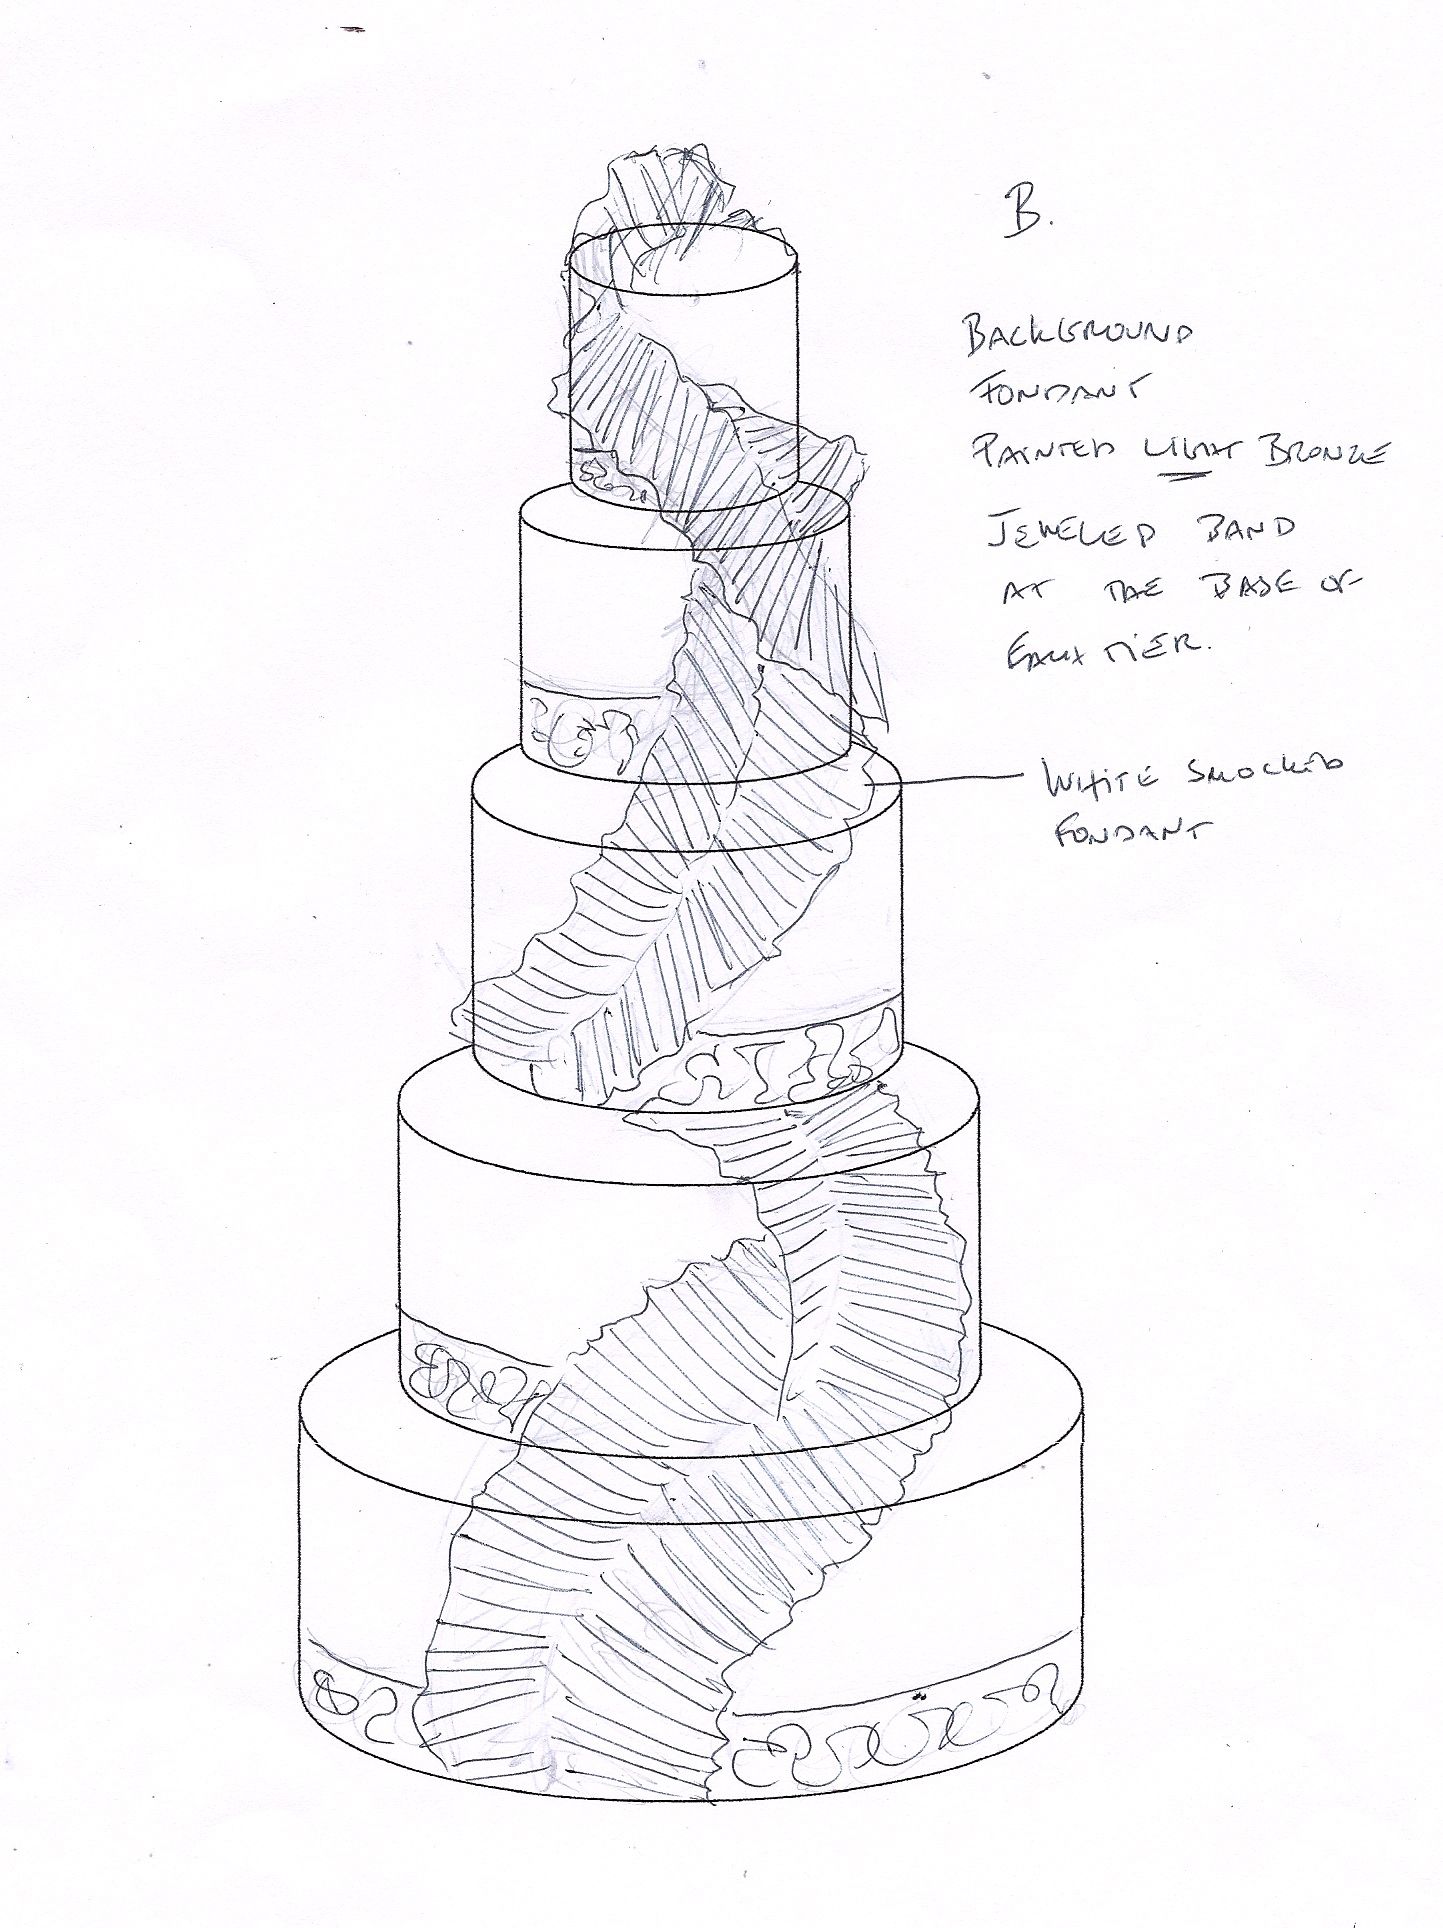 B.
BACKGROUND
FONDANT
PAINTED LIGHT BRONZE
JEWELED BAND
AT THE BASE OF
EAUX TIER.
WHITE SMOCKED
FONDANT